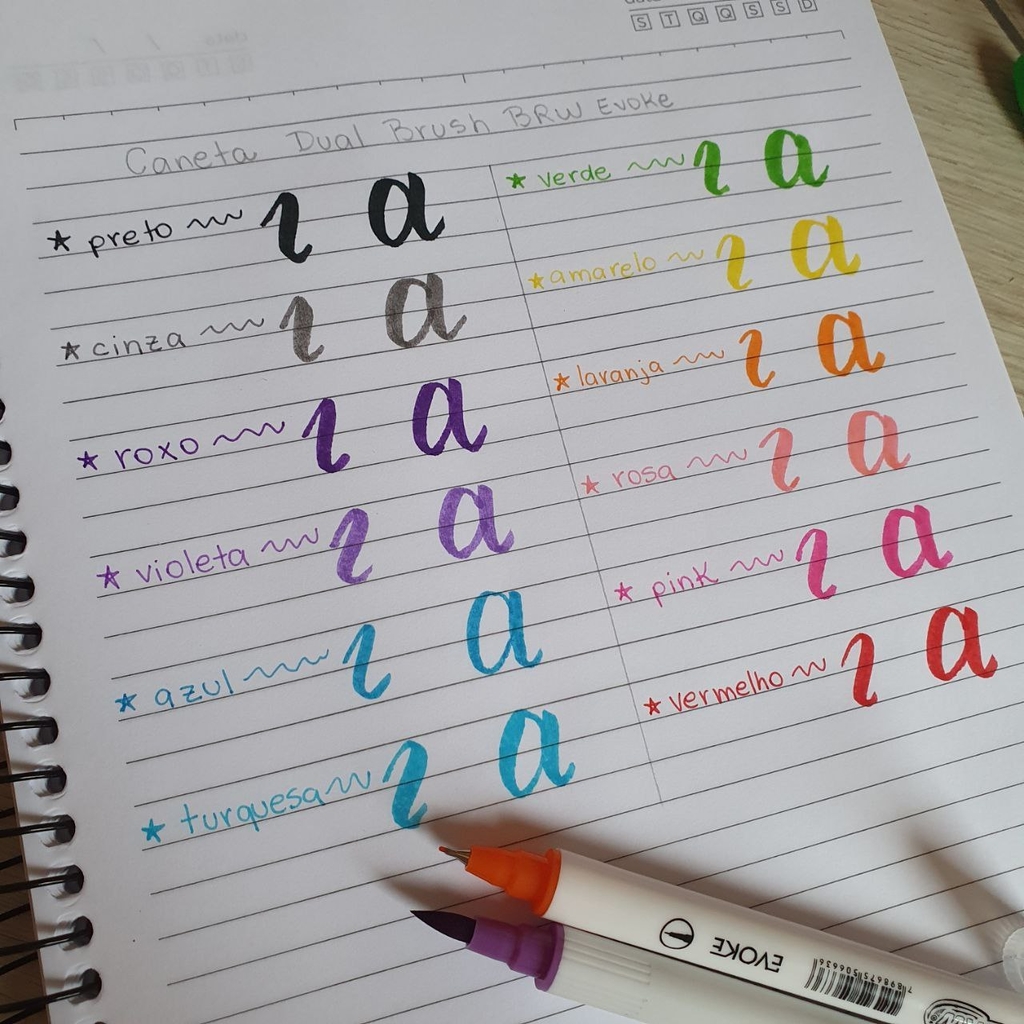 S T Q Q S S D
Caneta Dual Brush BRW Evoke
★ preto ı a
★ cinza ı a
★ roxo ı a
★ violeta ı a
★ azul ı a
★ turquesa ı a
★ verde ı a
★ amarelo ı a
★ laranja ı a
★ rosa ı a
★ pink ı a
★ vermelho ı a
EVOKE
7898675506636